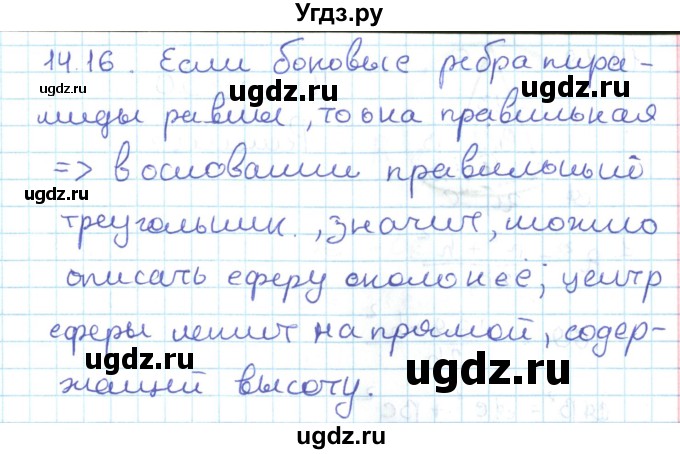 Угдз.ру
14.16. Если боковые ребра пира-
миды равны, то она правильная
=> в основании правильный
треугольник., значит, можно
описать сферу около неё; центр
сферы лежит на прямой, содер-
жащей высоту.
ugdz.ru
ugdz.ru
ugdz.ru
ugdz.ru
ugdz.ru
ugdz.ru
ugdz.ru
ugdz.ru
ugdz.ru
ugdz.ru